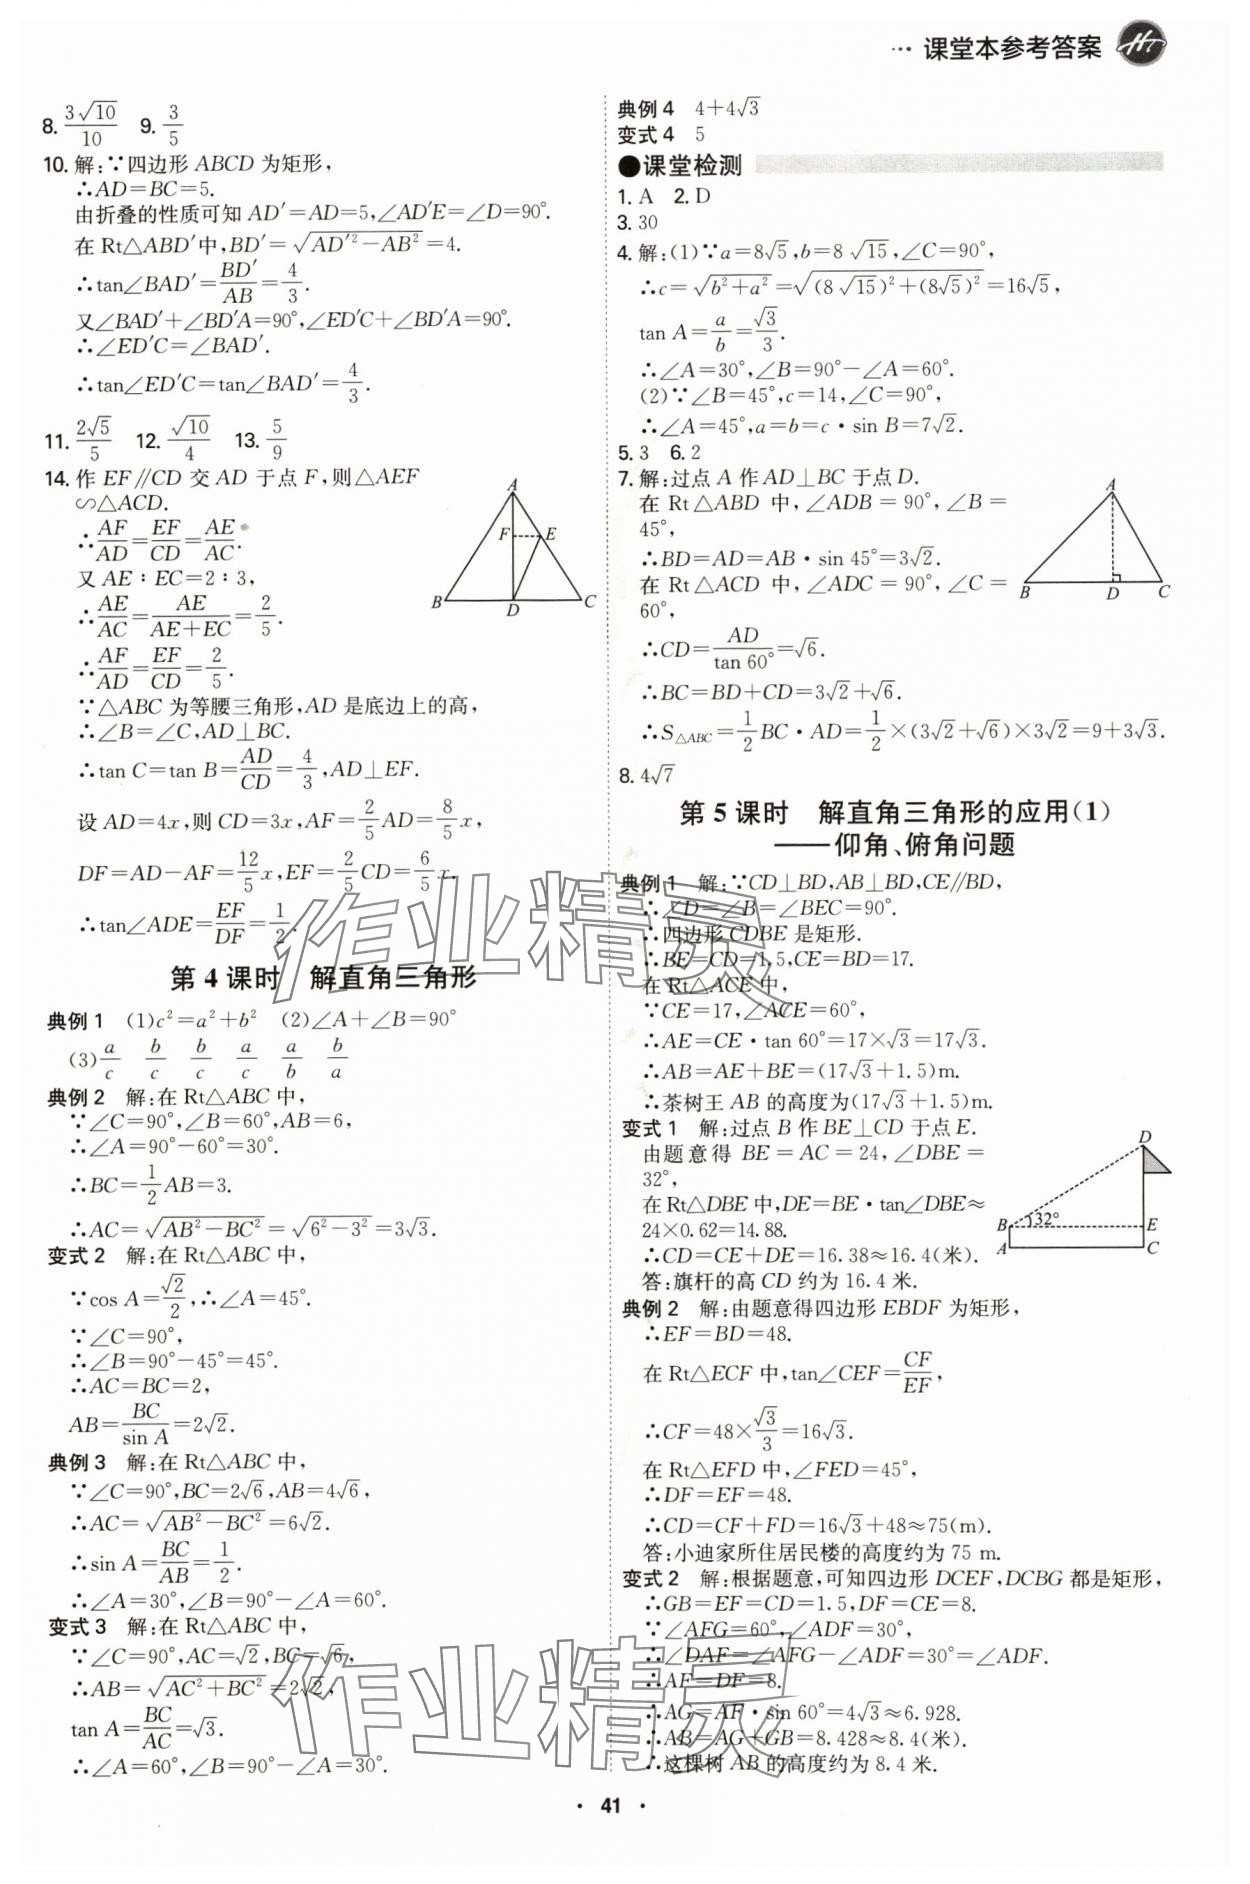 … 课堂本参考答案
8. 3√10/10  9. 3/5
10. 解:∵四边形 ABCD 为矩形,
∴AD=BC=5.
由折叠的性质可知 AD′=AD=5,∠AD′E=∠D=90°.
在 Rt△ABD′中,BD′=√(AD′²-AB²)=4.
∴tan∠BAD′=BD′/AB=4/3.
又∠BAD′+∠BD′A=90°,∠ED′C+∠BD′A=90°.
∴∠ED′C=∠BAD′.
∴tan∠ED′C=tan∠BAD′=4/3.
11. 2√5/5  12. √10/4  13. 5/9
14. 作 EF∥CD 交 AD 于点 F,则△AEF
∽△ACD.
∴AF/AD=EF/CD=AE/AC.
又 AE∶EC=2∶3,
∴AE/AC=AE/(AE+EC)=2/5.
∴AF/AD=EF/CD=2/5.
A
F E
B D C
∵△ABC 为等腰三角形,AD 是底边上的高,
∴∠B=∠C,AD⊥BC.
∴tan C=tan B=AD/CD=4/3,AD⊥EF.
设 AD=4x,则 CD=3x,AF=2/5AD=8/5x,
DF=AD-AF=12/5x,EF=2/5CD=6/5x,
∴tan∠ADE=EF/DF=1/2.
第 4 课时 解直角三角形
典例 1 (1)c²=a²+b² (2)∠A+∠B=90°
(3)a/c b/c b/c a/c a/b b/a
典例 2 解:在 Rt△ABC 中,
∵∠C=90°,∠B=60°,AB=6,
∴∠A=90°-60°=30°.
∴BC=1/2AB=3.
∴AC=√(AB²-BC²)=√(6²-3²)=3√3.
变式 2 解:在 Rt△ABC 中,
∵cos A=√2/2,∴∠A=45°.
∵∠C=90°,
∴∠B=90°-45°=45°.
∴AC=BC=2,
AB=BC/sin A=2√2.
典例 3 解:在 Rt△ABC 中,
∵∠C=90°,BC=2√6,AB=4√6,
∴AC=√(AB²-BC²)=6√2.
∴sin A=BC/AB=1/2.
∴∠A=30°,∠B=90°-∠A=60°.
变式 3 解:在 Rt△ABC 中,
∵∠C=90°,AC=√2,BC=√6,
∴AB=√(AC²+BC²)=2√2,
tan A=BC/AC=√3.
∴∠A=60°,∠B=90°-∠A=30°.
典例 4 4+4√3
变式 4 5
●课堂检测
1. A 2. D
3. 30
4. 解:(1)∵a=8√5,b=8√15,∠C=90°,
∴c=√(b²+a²)=√((8√15)²+(8√5)²)=16√5,
tan A=a/b=√3/3.
∴∠A=30°,∠B=90°-∠A=60°.
(2)∵∠B=45°,c=14,∠C=90°,
∴∠A=45°,a=b=c·sin B=7√2.
5. 3 6. 2
7. 解:过点 A 作 AD⊥BC 于点 D.
在 Rt△ABD 中,∠ADB=90°,∠B=
45°,
∴BD=AD=AB·sin 45°=3√2.
在 Rt△ACD 中,∠ADC=90°,∠C=
60°,
∴CD=AD/tan 60°=√6.
A
B D C
∴BC=BD+CD=3√2+√6.
∴S△ABC=1/2BC·AD=1/2×(3√2+√6)×3√2=9+3√3.
8. 4√7
第 5 课时 解直角三角形的应用(1)
——仰角、俯角问题
典例 1 解:∵CD⊥BD,AB⊥BD,CE∥BD,
∴∠D=∠B=∠BEC=90°.
∴四边形 CDBE 是矩形.
∴BE=CD=1.5,CE=BD=17.
在 Rt△ACE 中,
∵CE=17,∠ACE=60°,
∴AE=CE·tan 60°=17×√3=17√3.
∴AB=AE+BE=(17√3+1.5)m.
∴茶树王 AB 的高度为(17√3+1.5)m.
变式 1 解:过点 B 作 BE⊥CD 于点 E.
由题意得 BE=AC=24,∠DBE=
32°,
在 Rt△DBE 中,DE=BE·tan∠DBE≈
24×0.62=14.88.
∴CD=CE+DE=16.38≈16.4(米).
答:旗杆的高 CD 约为 16.4 米.
D
B 32° E
A C
典例 2 解:由题意得四边形 EBDF 为矩形,
∴EF=BD=48.
在 Rt△ECF 中,tan∠CEF=CF/EF,
∴CF=48×√3/3=16√3.
在 Rt△EFD 中,∠FED=45°,
∴DF=EF=48.
∴CD=CF+FD=16√3+48≈75(m).
答:小迪家所住居民楼的高度约为 75 m.
变式 2 解:根据题意,可知四边形 DCEF,DCBG 都是矩形,
∴GB=EF=CD=1.5,DF=CE=8.
∵∠AFG=60°,∠ADF=30°,
∴∠DAF=∠AFG-∠ADF=30°=∠ADF.
∴AF=DF=8.
∴AG=AF·sin 60°=4√3≈6.928.
∴AB=AG+GB=8.428≈8.4(米).
∴这棵树 AB 的高度约为 8.4 米.
· 41 ·
作业精灵
作业精灵